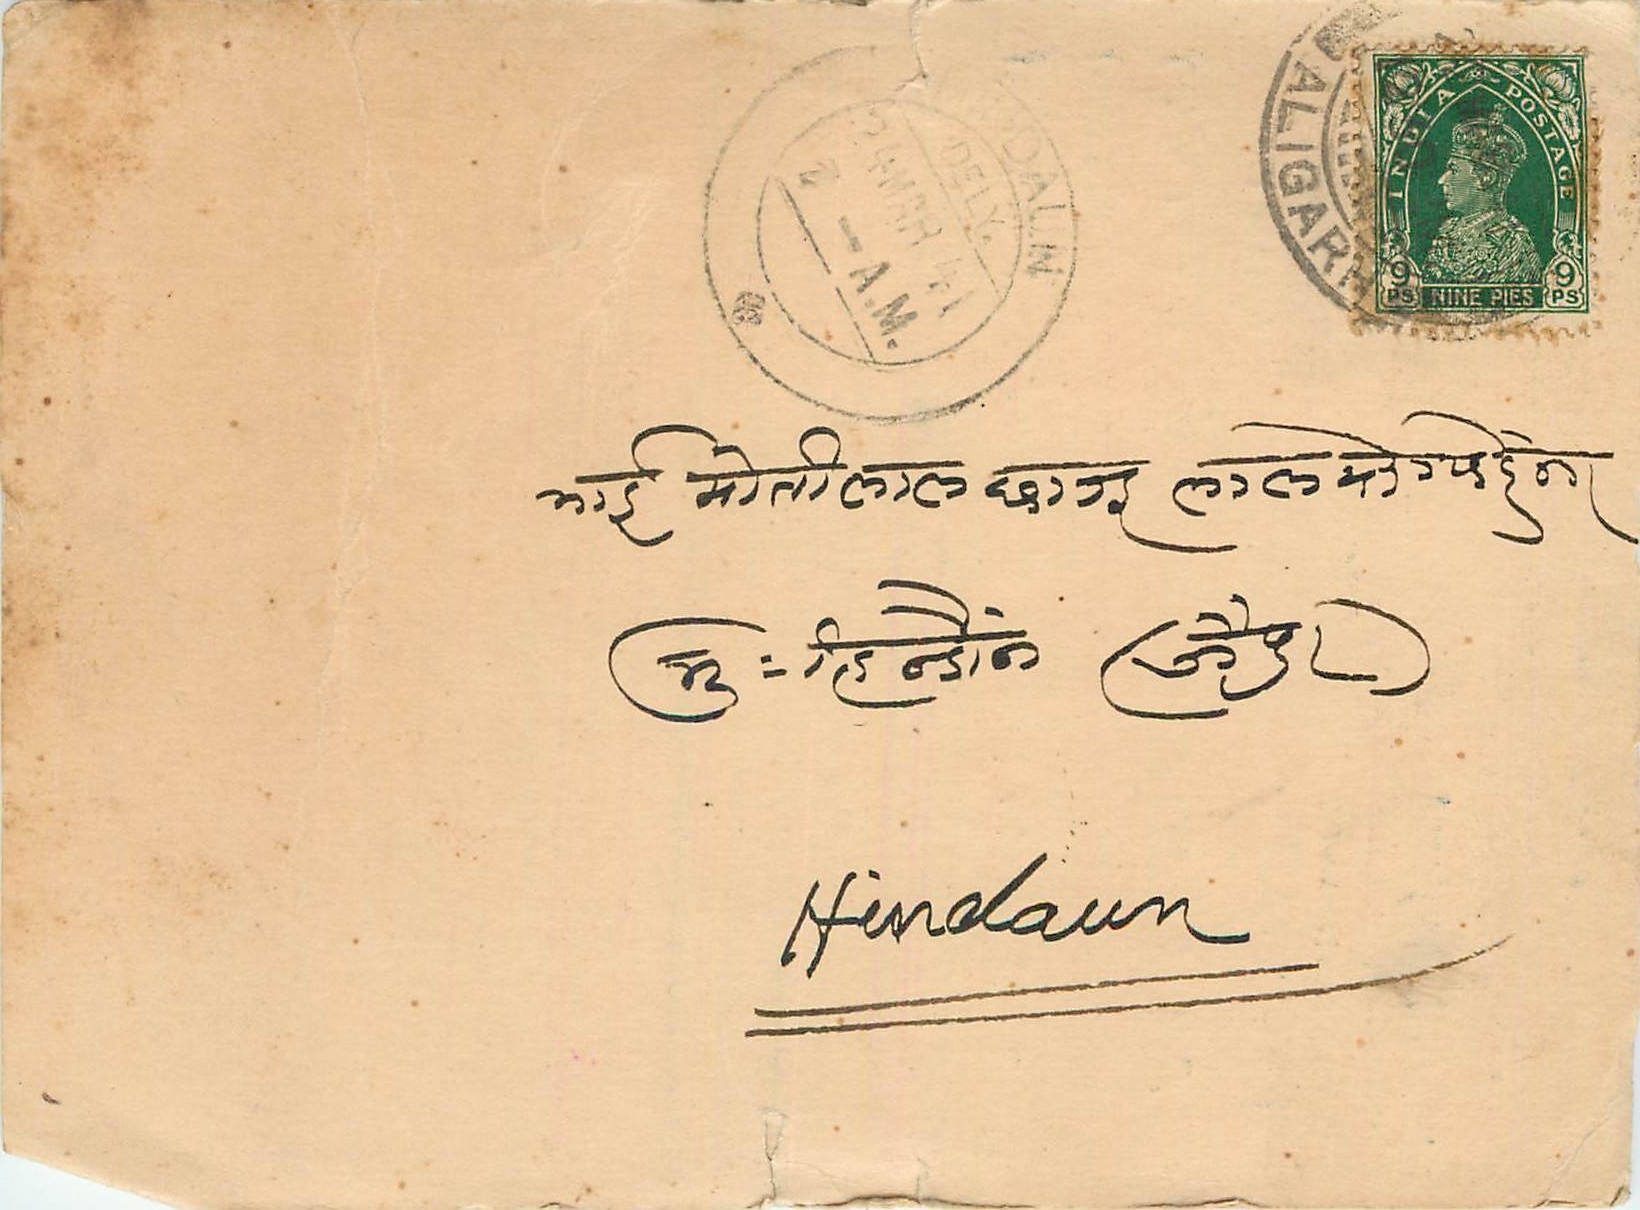 ALIGARH
INDIA POSTAGE
9 PS NINE PIES 9 PS
DELY.
24 MAR 41
2 - A.M.
भाई मोतीलाल छाजू लाल
मु = हिन्डौन
Hindaun